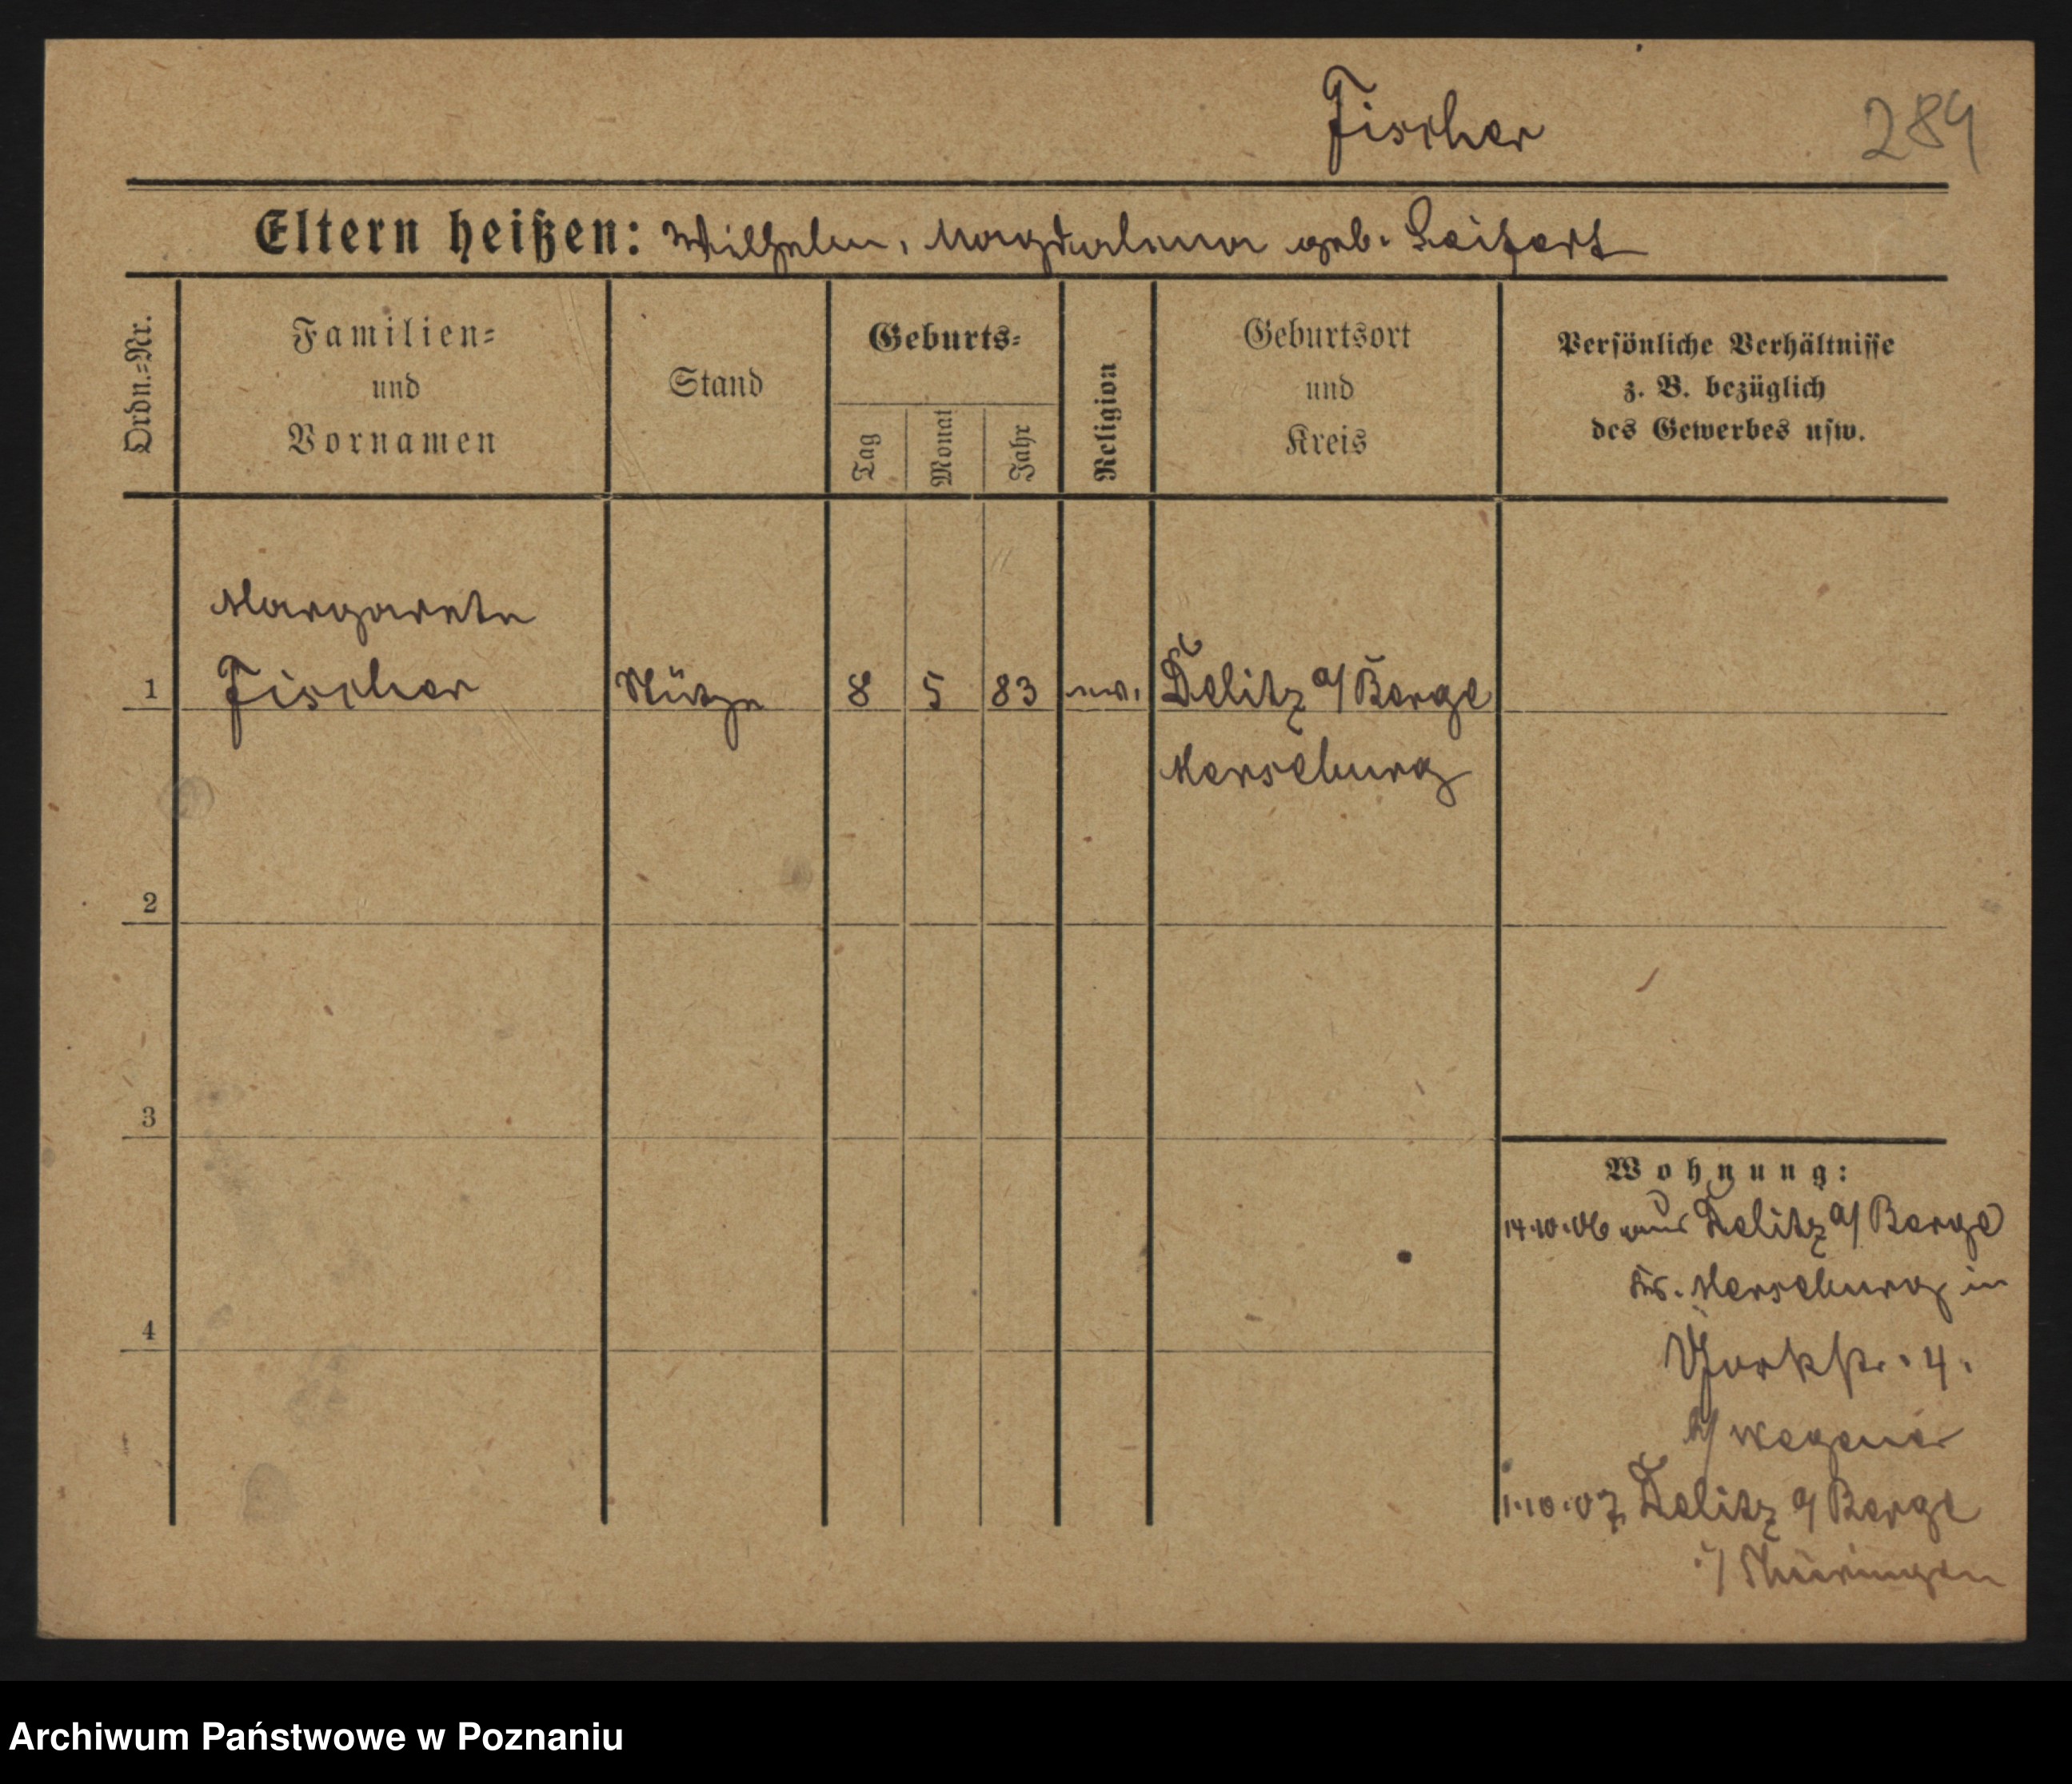 Fischer
284
Eltern heißen: Wilhelm, Magdalena geb. Seifert
Ordn.=Nr.
Familien=
und
Vornamen
Stand
Geburts=
Tag
Monat
Jahr
Religion
Geburtsort
und
Kreis
Persönliche Verhältnisse
z. B. bezüglich
des Gewerbes usw.
Margarete
1 Fischer Stütze 8 5 83 ev. Delitz a/ Berge
Merseburg
2
3
4
Wohnung:
14.10.06 aus Delitz a/ Berge
Kr. Merseburg in
Yorkstr. 4.
b/ Wegener
1.10.07 Delitz a/ Berge
i/ Thüringen
Archiwum Państwowe w Poznaniu